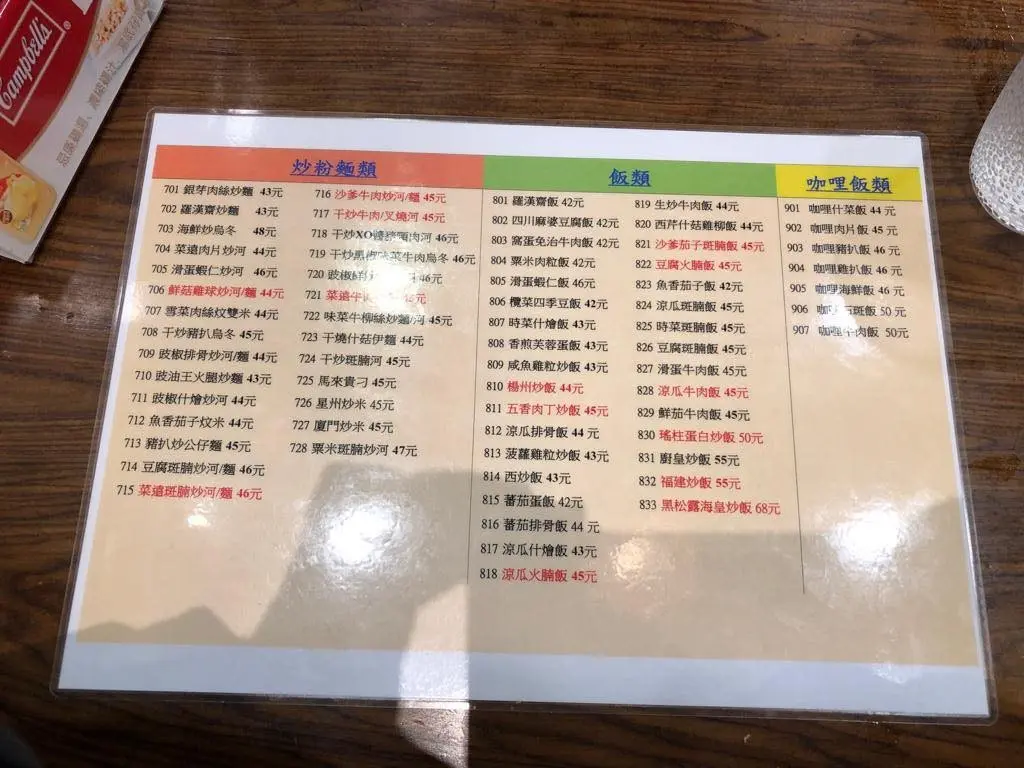 Campbell's
炒粉麵類
701 銀芽肉絲炒麵 43元
702 羅漢齋炒麵 43元
703 海鮮炒烏冬 48元
704 菜遠肉片炒河 44元
705 滑蛋蝦仁炒河 46元
706 鮮菇雞球炒河/麵 44元
707 雪菜肉絲炆雙米 44元
708 干炒豬扒烏冬 45元
709 豉椒排骨炒河/麵 44元
710 豉油王火腿炒麵 43元
711 豉椒什燴炒河 44元
712 魚香茄子炆米 44元
713 豬扒炒公仔麵 45元
714 豆腐斑腩炒河/麵 46元
715 菜遠斑腩炒河/麵 46元
716 沙爹牛肉炒河/麵 45元
717 干炒牛肉/叉燒河 45元
718 干炒XO醬豬頸肉河 46元
719 干炒黑椒味菜牛肉烏冬 46元
720 豉椒鮮 46元
721 菜遠牛 45元
722 味菜牛柳絲炒麵/河 45元
723 干燒什菇伊麵 44元
724 干炒斑腩河 45元
725 馬來貴刁 45元
726 星州炒米 45元
727 廈門炒米 45元
728 粟米斑腩炒河 47元
飯類
801 羅漢齋飯 42元
802 四川麻婆豆腐飯 42元
803 窩蛋免治牛肉飯 42元
804 粟米肉粒飯 42元
805 滑蛋蝦仁飯 46元
806 欖菜四季豆飯 42元
807 時菜什燴飯 43元
808 香煎芙蓉蛋飯 43元
809 咸魚雞粒炒飯 43元
810 楊州炒飯 44元
811 五香肉丁炒飯 45元
812 涼瓜排骨飯 44 元
813 菠蘿雞粒炒飯 43元
814 西炒飯 43元
815 蕃茄蛋飯 42元
816 蕃茄排骨飯 44 元
817 涼瓜什燴飯 43元
818 涼瓜火腩飯 45元
819 生炒牛肉飯 44元
820 西芹什菇雞柳飯 44元
821 沙爹茄子斑腩飯 45元
822 豆腐火腩飯 45元
823 魚香茄子飯 42元
824 涼瓜斑腩飯 45元
825 時菜斑腩飯 45元
826 豆腐斑腩飯 45元
827 滑蛋牛肉飯 45元
828 涼瓜牛肉飯 45元
829 鮮茄牛肉飯 45元
830 瑤柱蛋白炒飯 50元
831 廚皇炒飯 55元
832 福建炒飯 55元
833 黑松露海皇炒飯 68元
咖哩飯類
901 咖哩什菜飯 44 元
902 咖哩肉片飯 45 元
903 咖哩豬扒飯 46 元
904 咖哩雞扒飯 46 元
905 咖哩海鮮飯 46 元
906 咖哩石斑飯 50 元
907 咖哩牛肉飯 50元